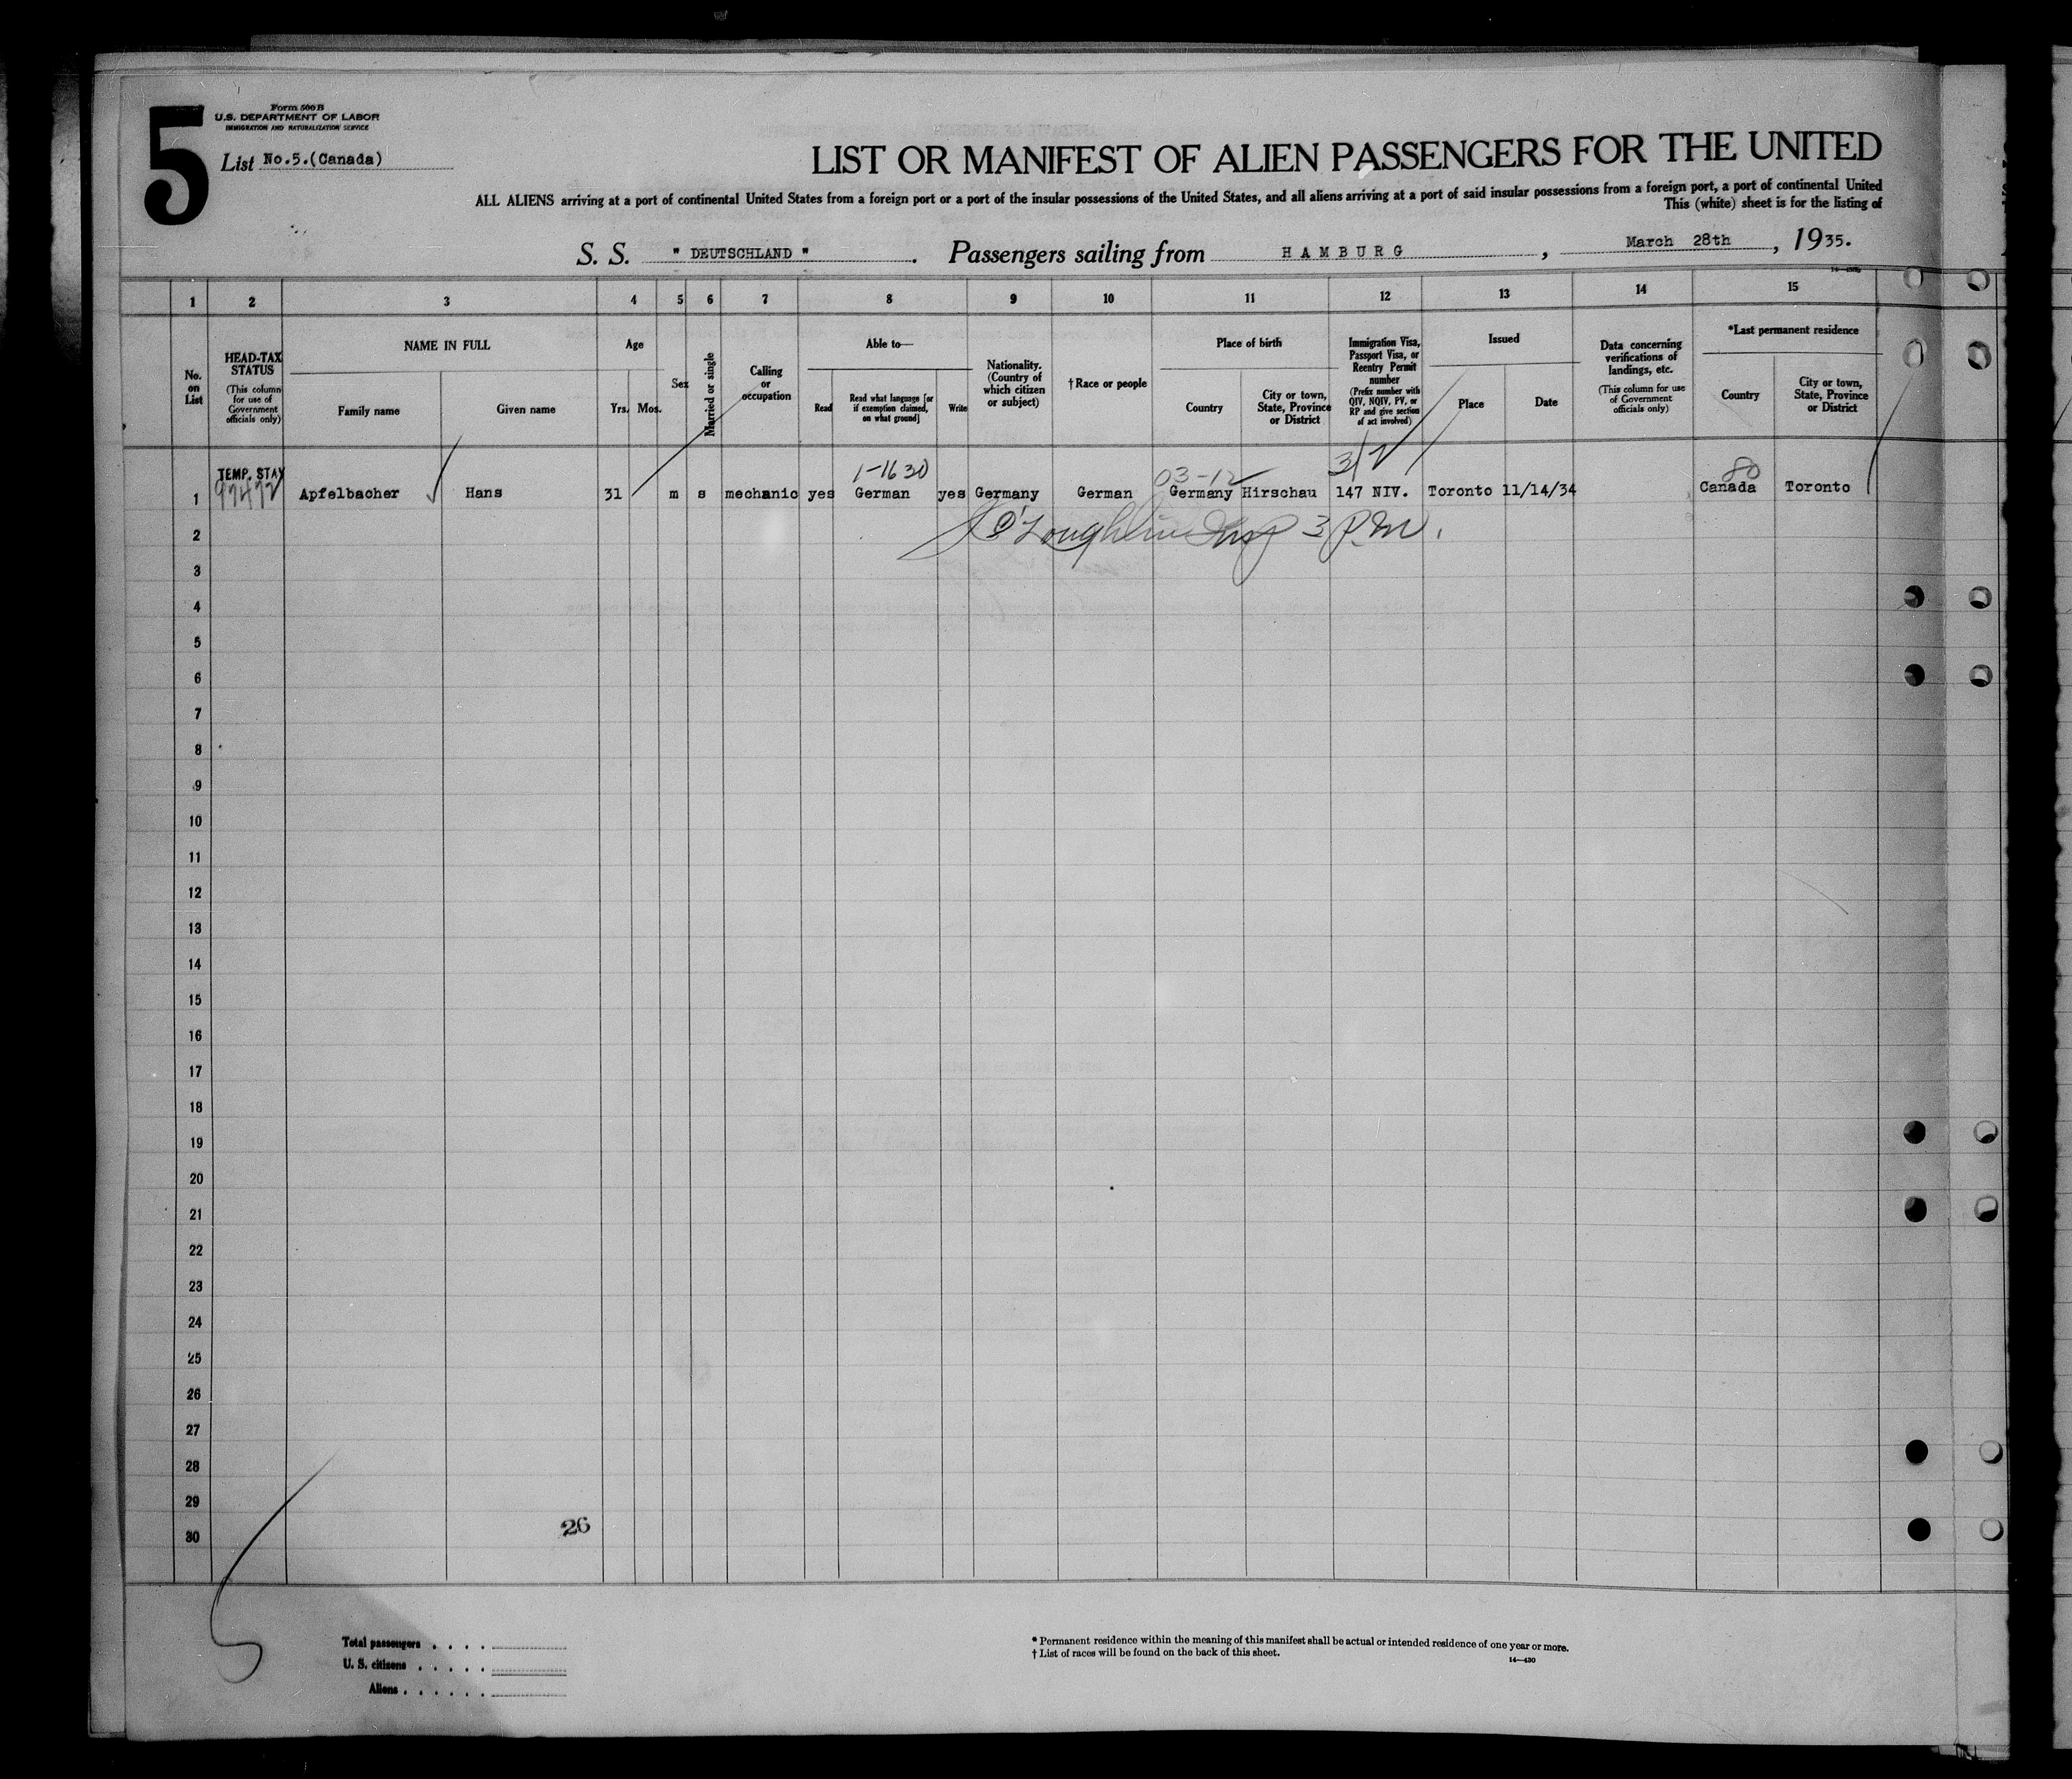 5
Form 500 B
U.S. DEPARTMENT OF LABOR
IMMIGRATION AND NATURALIZATION SERVICE
List No.5.(Canada)
LIST OR MANIFEST OF ALIEN PASSENGERS FOR THE UNITED
ALL ALIENS arriving at a port of continental United States from a foreign port or a port of the insular possessions of the United States, and all aliens arriving at a port of said insular possessions from a foreign port, a port of continental United
This (white) sheet is for the listing of
S. S. " DEUTSCHLAND " . Passengers sailing from HAMBURG , March 28th , 1935.
1 2 3 4 5 6 7 8 9 10 11 12 13 14 15
No. on List
HEAD-TAX STATUS (This column for use of Government officials only)
NAME IN FULL
Family name
Given name
Age
Yrs. Mos.
Sex
Married or single
Calling or occupation
Able to—
Read
Read what language [or if exemption claimed, on what ground]
Write
Nationality. (Country of which citizen or subject)
† Race or people
Place of birth
Country
City or town, State, Province or District
Immigration Visa, Passport Visa, or Reentry Permit number (Prefix number with QIV, NQIV, PV, or RP and give section of act involved)
Issued
Place
Date
Data concerning verifications of landings, etc. (This column for use of Government officials only)
*Last permanent residence
Country
City or town, State, Province or District
TEMP. STAY 1-16 30 03-12 80
1 Apfelbacher Hans 31 m s mechanic yes German yes Germany German Germany Hirschau 147 NIV. Toronto 11/14/34 Canada Toronto
2 O'Loughlin Insp 3 P.M.
3
4
5
6
7
8
9
10
11
12
13
14
15
16
17
18
19
20
21
22
23
24
25
26
27
28
29
30
26
Total passengers . . . .
U. S. citizens . . . . .
Aliens . . . . . .
* Permanent residence within the meaning of this manifest shall be actual or intended residence of one year or more.
† List of races will be found on the back of this sheet.
14—430